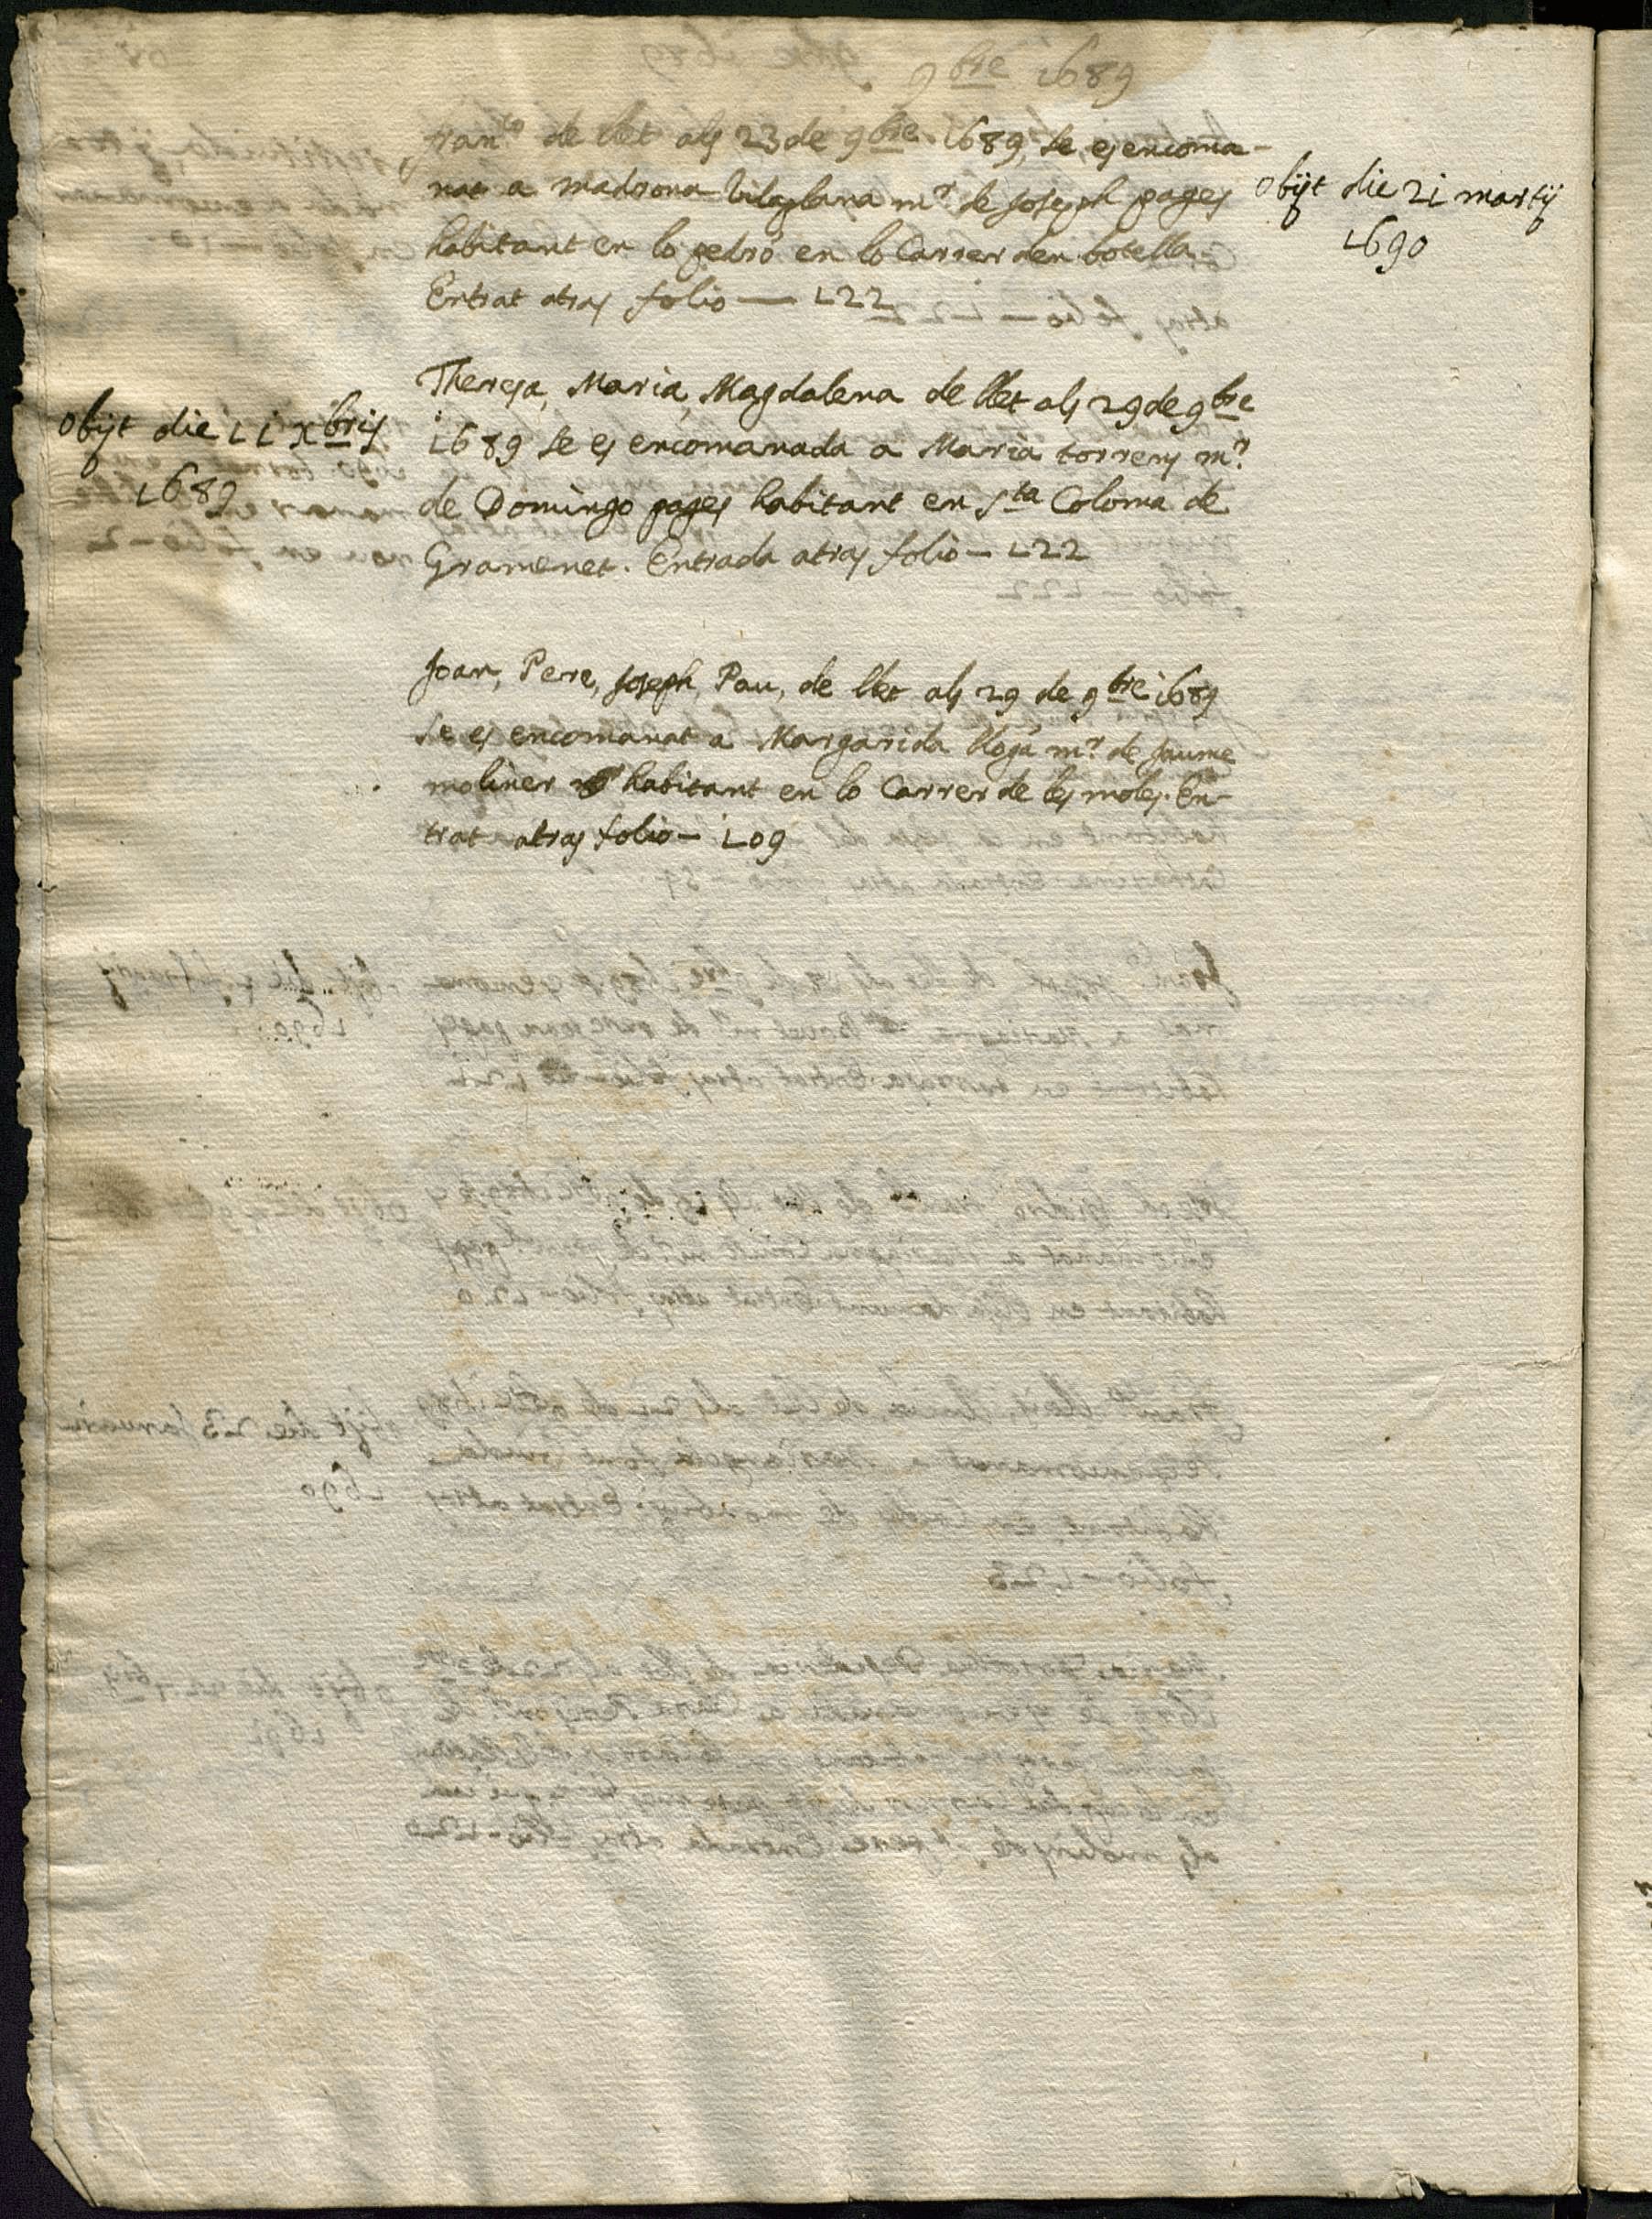 9bre 1689
Franco de llet als 23 de 9bre 1689, se es encoma-
nat a madrona Vilaplana mr. de Joseph pages
habitant en lo pedró en lo Carrer den botella.
Entrat atras folio — 122
obijt die 21 martij
1690
Theresa, Maria, Magdalena de llet als 29 de 9bre
1689 se es encomanada a Maria torrens mr.
de Domingo pages habitant en sta Coloma de
Gramenet. Entrada atras folio — 122
obijt die 11 xbris
1689
Joan, Pere, Joseph, Pau, de llet als 29 de 9bre 1689
se es encomanat a Margarida mr. de Jaume
moliner habitant en lo Carrer de les moles. En-
trat atras folio — 109